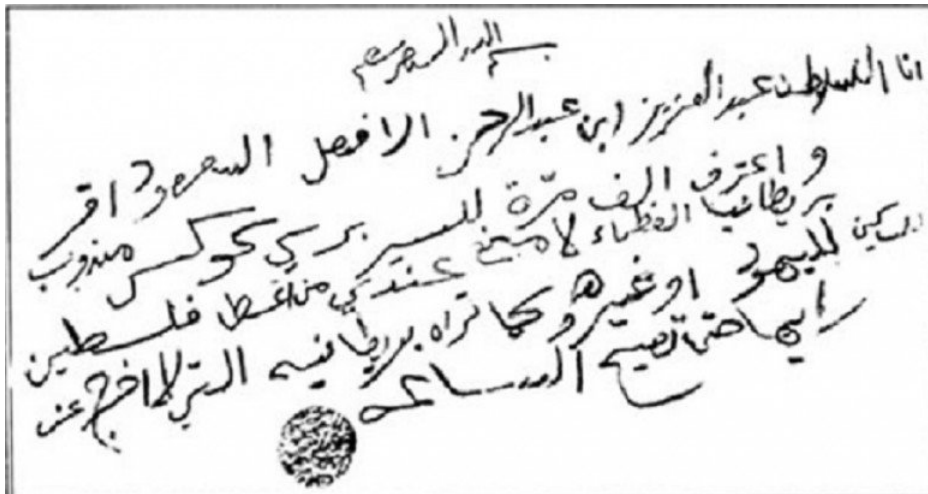 بسم الله الرحمن الرحيم
انا السلطان عبد العزيز ابن عبد الرحمن الافصل السعود اقر
و اعترف الف مرّة للسير برسي كوكس مندوب
بريطانيا العظماء لا مانع عندي من اعطي فلسطين
للمساكين لليهود او غيرهم وكما تراه بريطانيه التي لا اخرج عن
رايها حتى تصيح الساعه